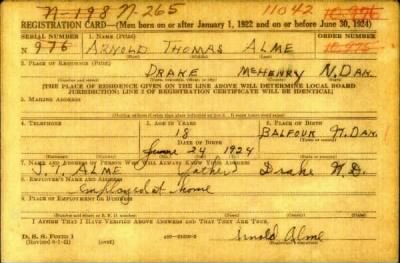 N-198 N-265 11042 10,976
REGISTRATION CARD—(Men born on or after January 1, 1922 and on or before June 30, 1924)
SERIAL NUMBER 1. NAME (Print) ORDER NUMBER
N 976 ARNOLD THOMAS ALME 10,975
(First) (Middle) (Last)
2. PLACE OF RESIDENCE (Print)
DRAKE McHENRY N.DAK.
[THE PLACE OF RESIDENCE GIVEN ON THE LINE ABOVE WILL DETERMINE LOCAL BOARD
JURISDICTION; LINE 2 OF REGISTRATION CERTIFICATE WILL BE IDENTICAL]
3. MAILING ADDRESS
4. TELEPHONE 5. AGE IN YEARS 6. PLACE OF BIRTH
18 BALFOUR N.DAK.
DATE OF BIRTH
June 24 1924
7. NAME AND ADDRESS OF PERSON WHO WILL ALWAYS KNOW YOUR ADDRESS
J. T. ALME father Drake N.D.
8. EMPLOYER'S NAME AND ADDRESS
Employed at home
9. PLACE OF EMPLOYMENT OR BUSINESS
I AFFIRM THAT I HAVE VERIFIED ABOVE ANSWERS AND THAT THEY ARE TRUE.
D. S. S. FORM 1
Arnold Alme